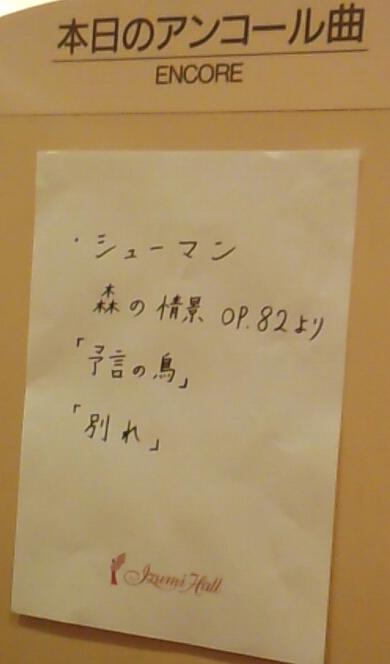 本日のアンコール曲
ENCORE
・シューマン
森の情景 OP.82より
「予言の鳥」
「別れ」
Izumi Hall